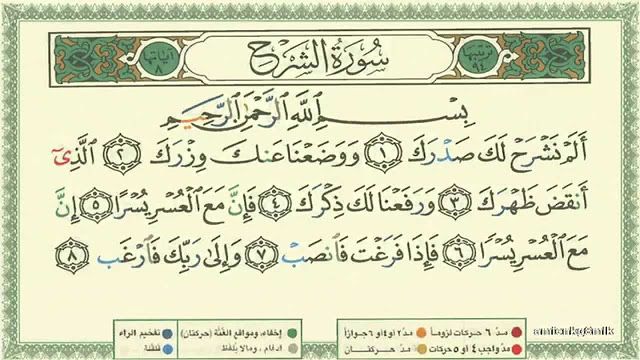 ترتيبها ٩٤ سُورَةُ الشَّرْحِ آياتها ٨
بِسْمِ ٱللَّهِ ٱلرَّحْمَٰنِ ٱلرَّحِيمِ
أَلَمْ نَشْرَحْ لَكَ صَدْرَكَ ١ وَوَضَعْنَا عَنكَ وِزْرَكَ ٢ ٱلَّذِىٓ
أَنقَضَ ظَهْرَكَ ٣ وَرَفَعْنَا لَكَ ذِكْرَكَ ٤ فَإِنَّ مَعَ ٱلْعُسْرِ يُسْرًا ٥ إِنَّ
مَعَ ٱلْعُسْرِ يُسْرًا ٦ فَإِذَا فَرَغْتَ فَٱنصَبْ ٧ وَإِلَىٰ رَبِّكَ فَٱرْغَب ٨
مدّ ٦ حركات لزوماً مدّ ٢ أو ٤ أو ٦ جوازاً إخفاء، ومواقع الغُنَّة (حركتان) تفخيم الراء
مدّ واجب ٤ أو ٥ حركات مدّ حركتان إدغام، وما لا يُلفظ قلقلة